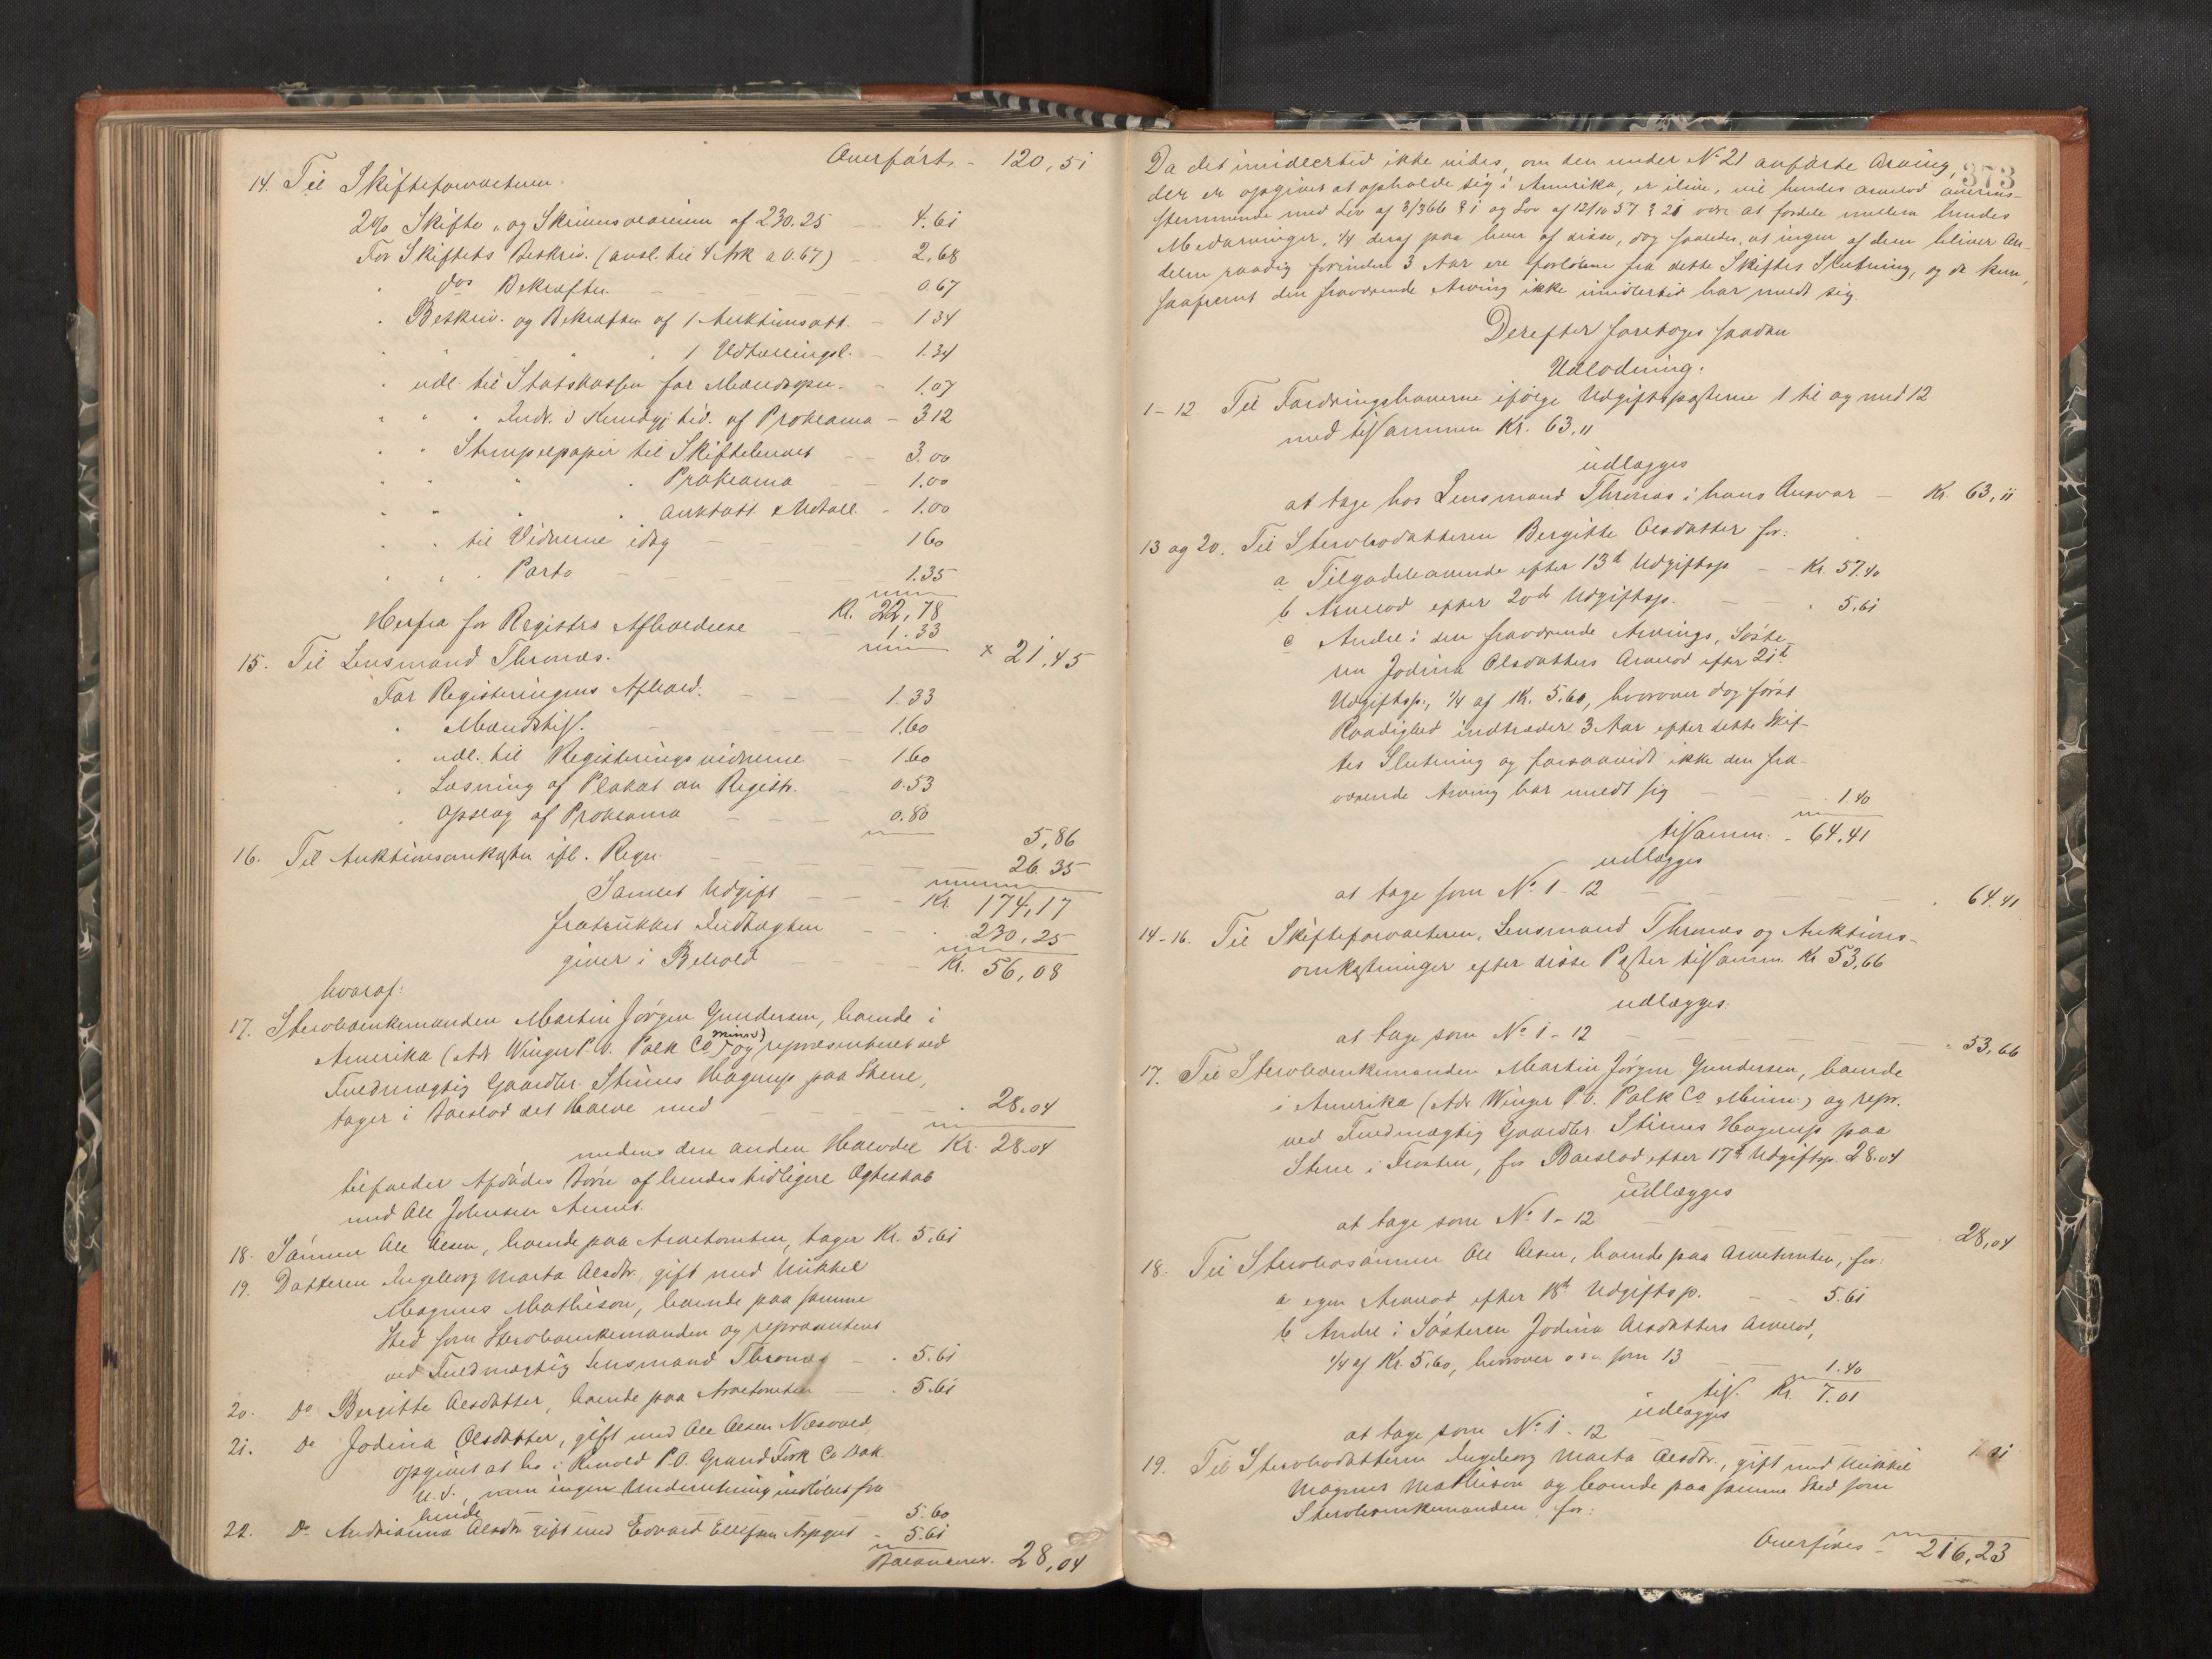 Overført - 120,51
14. Til Skifteforvalteren:
2% Skifte- og Skriversalarium af 230.25 - 4.61
For Skiftets Beskriv. (ansl. til 4 Ark a 0.67) - 2.68
" dos Bekræften - 0.67
" Beskriv. og Bekræften af 1 Auktionsatt. - 1 34
" " " " 1 Udtællingsl. - 1.34
" udl. til Statskassen for Mændsopn. - 1.07
" " " Indr. i Kundgj.tid. af Proklama - 3 12
" " Stempelpapir til Skiftebrevet - 3.00
" " " " Proklama - 1.00
" " " " Auktatt. & Udtæll. - 1.00
" " til Vidnerne idag - 1 60
" " " Porto - 1.35
Kr. 22,78
Herfra for Registrs Afholdelse - 1.33
× 21,45
15. Til Lensmand Thronæs.
For Registreringens Afhold. - 1.33
" Mændstils. - 1.60
" udl. til Registreringsvidnerne - 1.60
" Læsning af Plakat om Registr. - 0.53
" Opslag af Proklama - 0.80
5,86
16. Til Auktionsomkostn. ifl. Regn. - 26.35
Samlet Udgift - Kr. 174,17
fratrukket Indtægten - 230,25
giver i Behold - Kr. 56,08
hvoraf:
17. Stervboenkemanden Martin Jørgen Gundersen, boende i
Amerika (Adr. Winger P.O. Polk Co Minn) og repræsenteret ved
Fuldmægtig Gaardbr. Stinus Hagerup paa Stene,
tager i Boeslod det Halve med - 28.04
medens den anden Halvdel Kr. 28.04
tilfalder Afdødes Børn af hendes tidligere Ægteskab
med Ole Johnsen Aunet.
18. Sønnen Ole Olsen, boende paa Arnetomten, tager Kr. 5.61
19. Datteren Ingeborg Marta Olsdtr. gift med Mikkel
Magnus Mathison, boende paa samme
Sted som Stervboenkemanden og repræsenteret
ved Fuldmægtig Lensmand Thronæs - 5.61
20. Do Bergitte Olsdatter, boende paa Arnetomten - 5.61
21. Do Jodina Olsdatter, gift med Ole Olsen Næsvold,
opgivet at bo i Rinold P.O. Grand Fork Co Dak.
U.S., men ingen Underretning indløbet fra
hende - 5.60
22. Do Andrianna Olsdtr. gift med Edvard Ellefsen - 5.61
Balancerer. 28,04
373
Da det imidlertid ikke vides, om den under No 21 anførte Arving,
der er opgivet at opholde sig i Amerika, er ilive, vil hendes Arvelod overens-
stemmende med Lov af 3/3 66 § 1 og Lov af 12/10 57 § 21 være at fordele mellem hendes
Medarvinger, 1/4 deraf paa hver af disse, dog saaledes, at ingen af dem bliver An-
delen raadig forinden 3 Aar ere forløbne fra dette Skiftes Slutning, og da kun,
saafremt den fraværende Arving ikke imidlertid har meldt sig.
Derefter foretoges saadan
Udlodning:
1-12. Til Fordringshaverne ifølge Udgiftsposterne 1 til og med 12
med tilsammen Kr. 63.11
udlægges
at tage hos Lensmand Thronæs i hans Ansvar - Kr. 63,11
13 og 20. Til Stervbodatteren Bergitte Olsdatter for:
a Tilgodehavende efter 13de Udgiftsp. - Kr. 57.40
b Arvelod efter 20de Udgiftsp. - 5.61
c Andel i den fraværende Arvings, Søste-
ren Jodina Olsdatters Arvelod efter 21de
Udgiftsp., 1/4 af Kr. 5.60, hvorover dog først
Raadighed indtræder 3 Aar efter dette Skif-
tes Slutning og forsaavidt ikke den fra-
værende Arving har meldt sig - 1.40
tilsamm. - 64.41
udlægges
at tage som No 1 - 12 - 64.41
14-16. Til Skifteforvalteren, Lensmand Thronæs og Auktions-
omkostninger efter disse Poster tilsamm. Kr 53,66
udlægges:
at tage som No 1 - 12 - 53,66
17. Til Stervboenkemanden Martin Jørgen Gundersen, boende
i Amerika (Adr. Winger P.O. Polk Co Minn.) og repr.
ved Fuldmægtig Gaardbr. Stinus Hagerup paa
Stene i Frosten, for Boeslod efter 17de Udgiftsp. 28.04
udlægges
at tage som No 1 - 12 - 28,04
18. Til Stervbosønnen Ole Olsen, boende paa Arnetomten, for:
a egen Arvelod efter 18de Udgiftsp. - 5.61
b Andel i Søsteren Jodina Olsdatters Arvelod,
1/4 af Kr. 5.60, hvorover o.s.v. som 13 - 1.40
tils. Kr. 7.01
udlægges
at tage som No 1 - 12 - 7.01
19. Til Stervbodatteren Ingeborg Marta Olsdtr., gift med Mikkel
Magnus Mathison og boende paa samme Sted som
Stervboenkemanden, for:
Overføres - 216,23